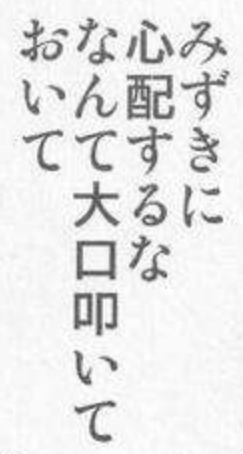 みずきに
心配するな
なんて大口叩いて
おいて